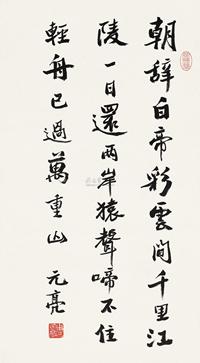 朝辞白帝彩雲間千里江
陵一日還兩岸猿聲啼不住
輕舟已過萬重山 元亮